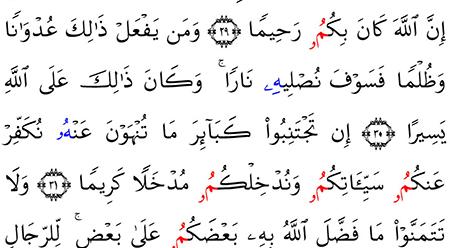 إِنَّ ٱللَّهَ كَانَ بِكُمُۥ رَحِيمًا ٢٩ وَمَن يَفْعَلْ ذَٰلِكَ عُدْوَٰنًا
وَظُلْمًا فَسَوْفَ نُصْلِيهِۦ نَارًا ۚ وَكَانَ ذَٰلِكَ عَلَى ٱللَّهِ
يَسِيرًا ٣٠ إِن تَجْتَنِبُوا۟ كَبَآئِرَ مَا تُنْهَوْنَ عَنْهُۥ نُكَفِّرْ
عَنكُمُۥ سَيِّـَٔاتِكُمُۥ وَنُدْخِلْكُمُۥ مُدْخَلًا كَرِيمًا ٣١ وَلَا
تَتَمَنَّوْا۟ مَا فَضَّلَ ٱللَّهُ بِهِۦ بَعْضَكُمُۥ عَلَىٰ بَعْضٍ ۚ لِّلرِّجَالِ